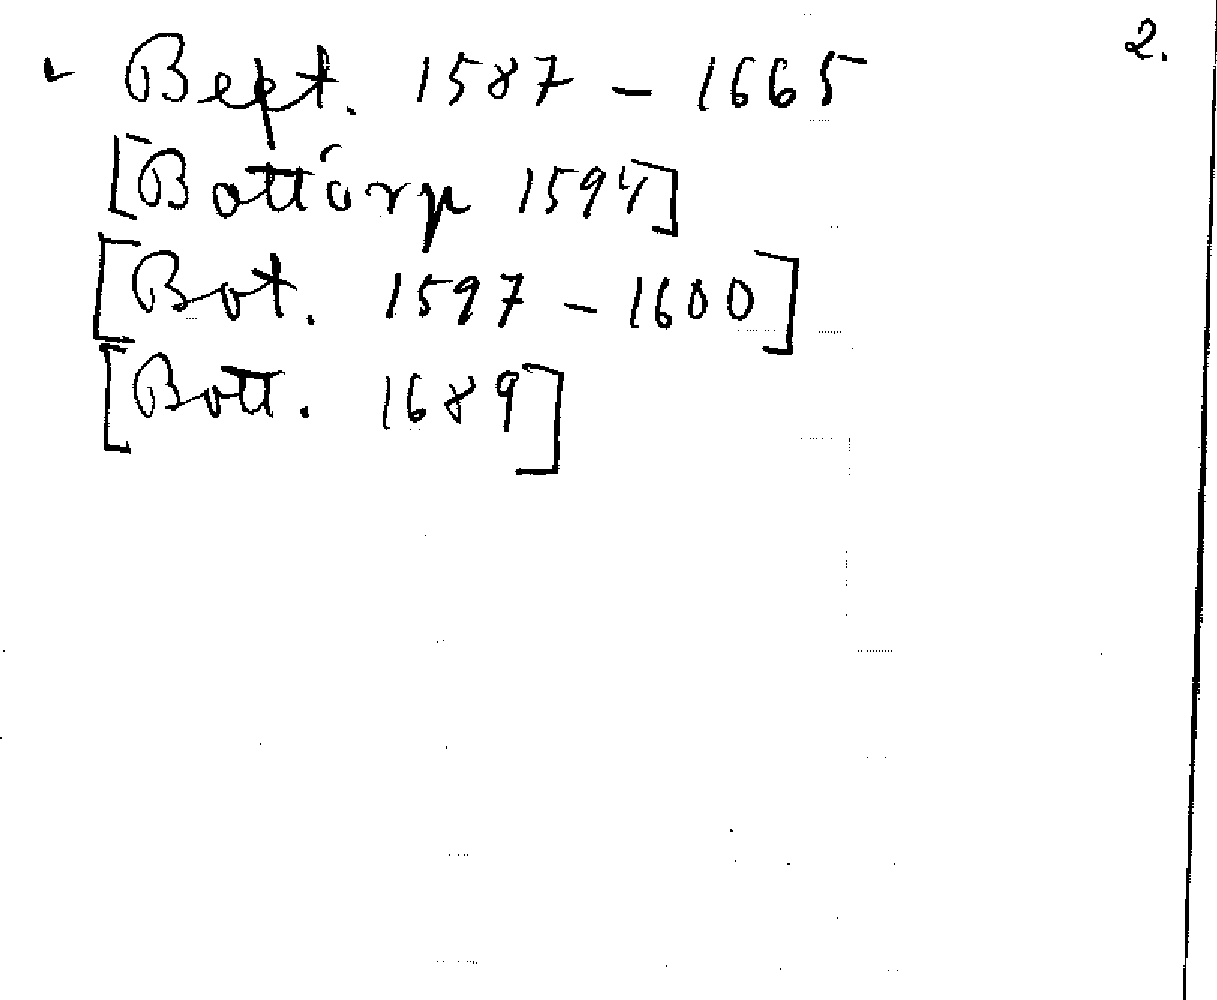 2.
Bept. 1587 - 1665
[Bottorp 1594]
[Bot. 1597 - 1600]
[Bott. 1689]